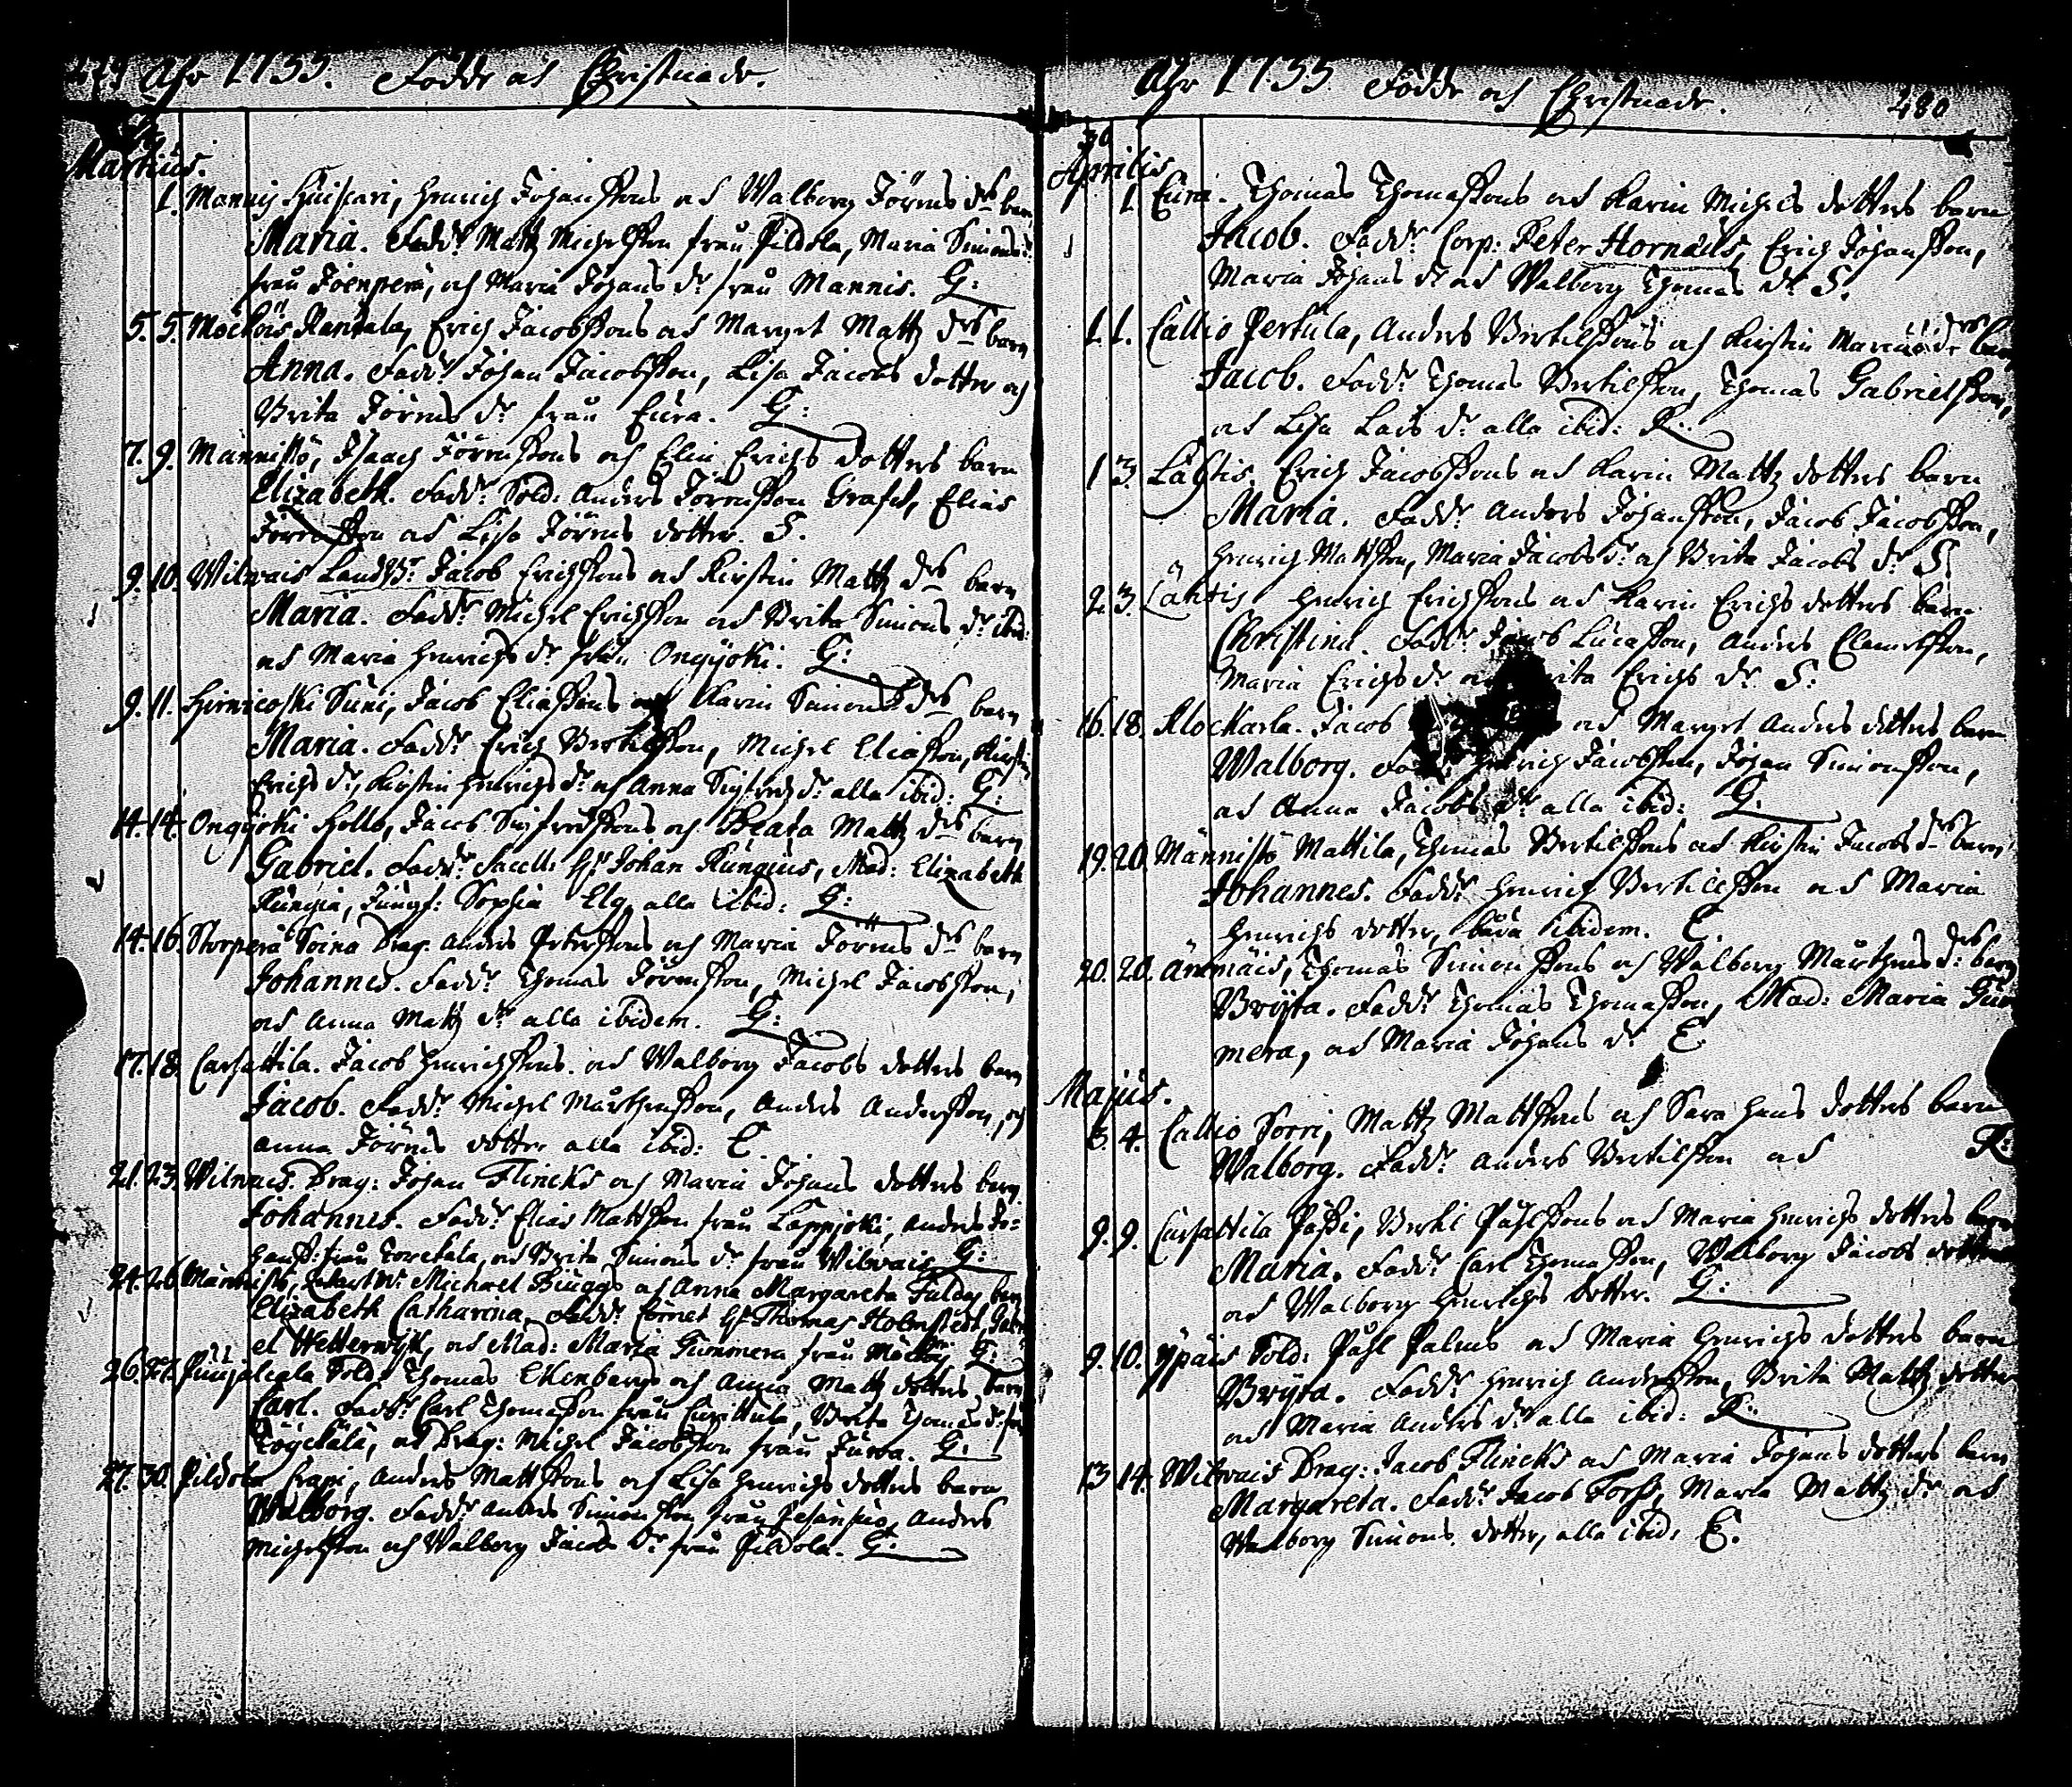 479 Åhr 1755. Födde och Christnade.
Martius.
1. Mannis Huispari, Henrich Johanssons och Walborg Jörens drs barn
Maria. Fadd: Matts Michelsson från Pildola, Maria Simons dr
från Joenperä, och Maria Johans dr från Mannis. G:
5. 5. Randala, Erich Jacobssons och Marget Matts drs barn
Anna. Fadd: Johan Jacobsson, Lisa Jacobs dotter och
Brita Jörens dr från Eura. G:
7. 9. Mannistö, Isaach Jörenssons och Elin Erichs dotters barn
Elizabeth. Fadd: Sold: Anders Jörensson Grafst, Elias
Jörensson och Lisa Jörens dotter. S.
9. 10. Wilvais Landsbr Jacob Erichssons och Kirstin Matts drs barn
Maria. Fadd: Michel Erichsson och Brita Simons dr ibid:
och Maria Henrichs dr från Ongijoki. G:
9. 11. Hirvicoski Suni, Jacob Eliassons och Karin Simons drs barn
Maria. Fadd: Erich Bertilsson, Michel Eliasson, Kirstin
Erichs dr, Kirstin Henrichs dr och Anna Sigfreds dr alla ibid: G:
14. 14. Ongijoki Hollo, Jacob Sigfredssons och Beata Matts drs barn
Gabriel. Fadd: Sacell: Hr Johan Rungius, Mad: Elizabeth
Rungia, Jungf: Sophia Elg alla ibid: G:
14. 16. Storperä Soina Drag: Anders Peterssons och Maria Jörens drs barn
Johannes. Fadd: Thomas Jörensson, Michel Jacobsson,
och Anna Matts dr alla ibidem. G:
17. 18. Carsattila. Jacob Henrichssons och Walborg Jacobs dotters barn
Jacob. Fadd: Michel Mårthensson, Anders Andersson, och
Anna Jörens dotter alla ibid: C.
21. 23. Wilvais. Drag: Johan Flincks och Maria Johans dotters barn
Johannes. Fadd: Elias Mattsson från Lappijoki, Anders Jo=
hanss: från och Brita Simons dr från Wilvais G:
24. 26. Mannistö, Michael Biuggs och Anna Margareta barn
Elizabeth Catharina. Fadd: Cornet Hr Thomas Holmstedt, Gabri
el Wetterwyk, och Mad: Maria Gummera från G:
26. 27. Sold: Thomas Ekenbergs och Anna Matts dotters barn
Carl. Fadd: Carl Thomasson från Brita Thomas dr från
och Drag: Michel Jacobsson från Juwa. G:
27. 30. Pildola Crapi, Anders Mattssons och Lisa Henrichs dotters barn
Walborg. Fadd: Anders Simonsson från Anders
Michelsson och Walborg Jacobs dr från Pildola. G:
Åhr 1755 Födde och Christnade. 480
30
Aprilis
1. Eura. Thomas Thomassons och Karin Michels dotters barn
Jacob. Fadd: Corp: Peter Hornæus, Erich Johansson,
Maria Johans dr och Walborg Thomas dr S.
1. 1. Callio Pertula, Anders Bertilssons och Kirstin drs barn
Jacob. Fadd: Thomas Bertilsson, Thomas Gabrielsson,
och Lisa Lars dr alla ibid: R.
1 3. Lähtis. Erich Jacobssons och Karin Matts dotters barn
Maria. Fadd: Anders Johansson, Jacob Jacobsson,
Henrich Mattsson, Maria Jacobs dr och Brita Jacobs dr S.
2. 3. Lähtis Henrich Erichssons och Karin Erichs dotters barn
Christina. Fadd: Jacob Lucasson, Anders Clemetsson,
Maria Erichs dr Erichs dr S.
16. 18. Klockarla. Jacob och Marget Anders dotters barn
Walborg. Fadd: Henrich Jacobsson, Johan Simonsson,
och Anna Jacobs dr alla ibid: G.
19. 20. Männistö Mattila, Thomas Bertilssons och Kirstin Jacobs drs barn
Johannes. Fadd: Henrich Bertilsson och Maria
Henrichs dotter, båda ibidem. C.
20. 20. Ämmäis, Thomas Simonssons och Walborg Mårthens drs barn
Bryta. Fadd: Thomas Thomasson, Mad: Maria Gum
mera, och Maria Johans dr C.
Majus.
3. 4. Callio Sorri, Matts Mattssons och Sara Hans dotters barn
Walborg. Fadd: Anders Bertilsson och R:
9. 9. Carsattila Påssi, Bertil Påhlssons och Maria Henrichs dotters barn
Maria. Fadd: Carl Thomasson, Walborg Jacobs dotter
och Walborg Henrichs dotter. G:
9. 10. Ypäis Sold: Påhl Palms och Maria Henrichs dotters barn
Bryta. Fadd: Henrich Andersson, Brita Matts dotter
och Maria Anders dr alla ibid: R:
13 14. Wilvais Drag: Jacob Flincks och Maria Johans dotters barn
Margareta. Fadd: Jacob Forss, Maria Matts dr och
Walborg Simons dotter, alla ibid: C.